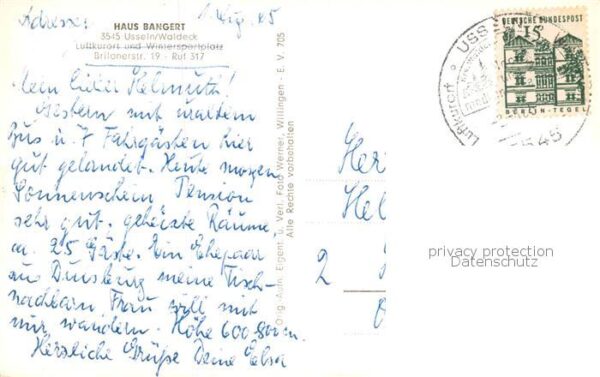 Adresse:
HAUS BANGERT
3545 Usseln/Waldeck
Luftkurort und Wintersportplatz
Brilonerstr. 19 - Ruf 317
Mein lieber Helmuth!
Gestern mit
Bus u. 7 Fahrgästen hier
gut gelandet. Heute morgen
Sonnenschein Pension
sehr gut. geheizte Räume
ca. 25 Gäste. Ein Ehepaar
aus Duisburg meine Tisch-
nachbarn Frau will mit
mir wandern. Höhe 600
Herzliche Grüße Deine Elsa
Orig.-Aufn. Eigent. u. Verl. Foto Werner, Willingen - E. V. 705
Alle Rechte vorbehalten
Her
Hel
2
DEUTSCHE BUNDESPOST
15
BERLIN-TEGEL
USSE
Luftkurort
3545
privacy protection
Datenschutz